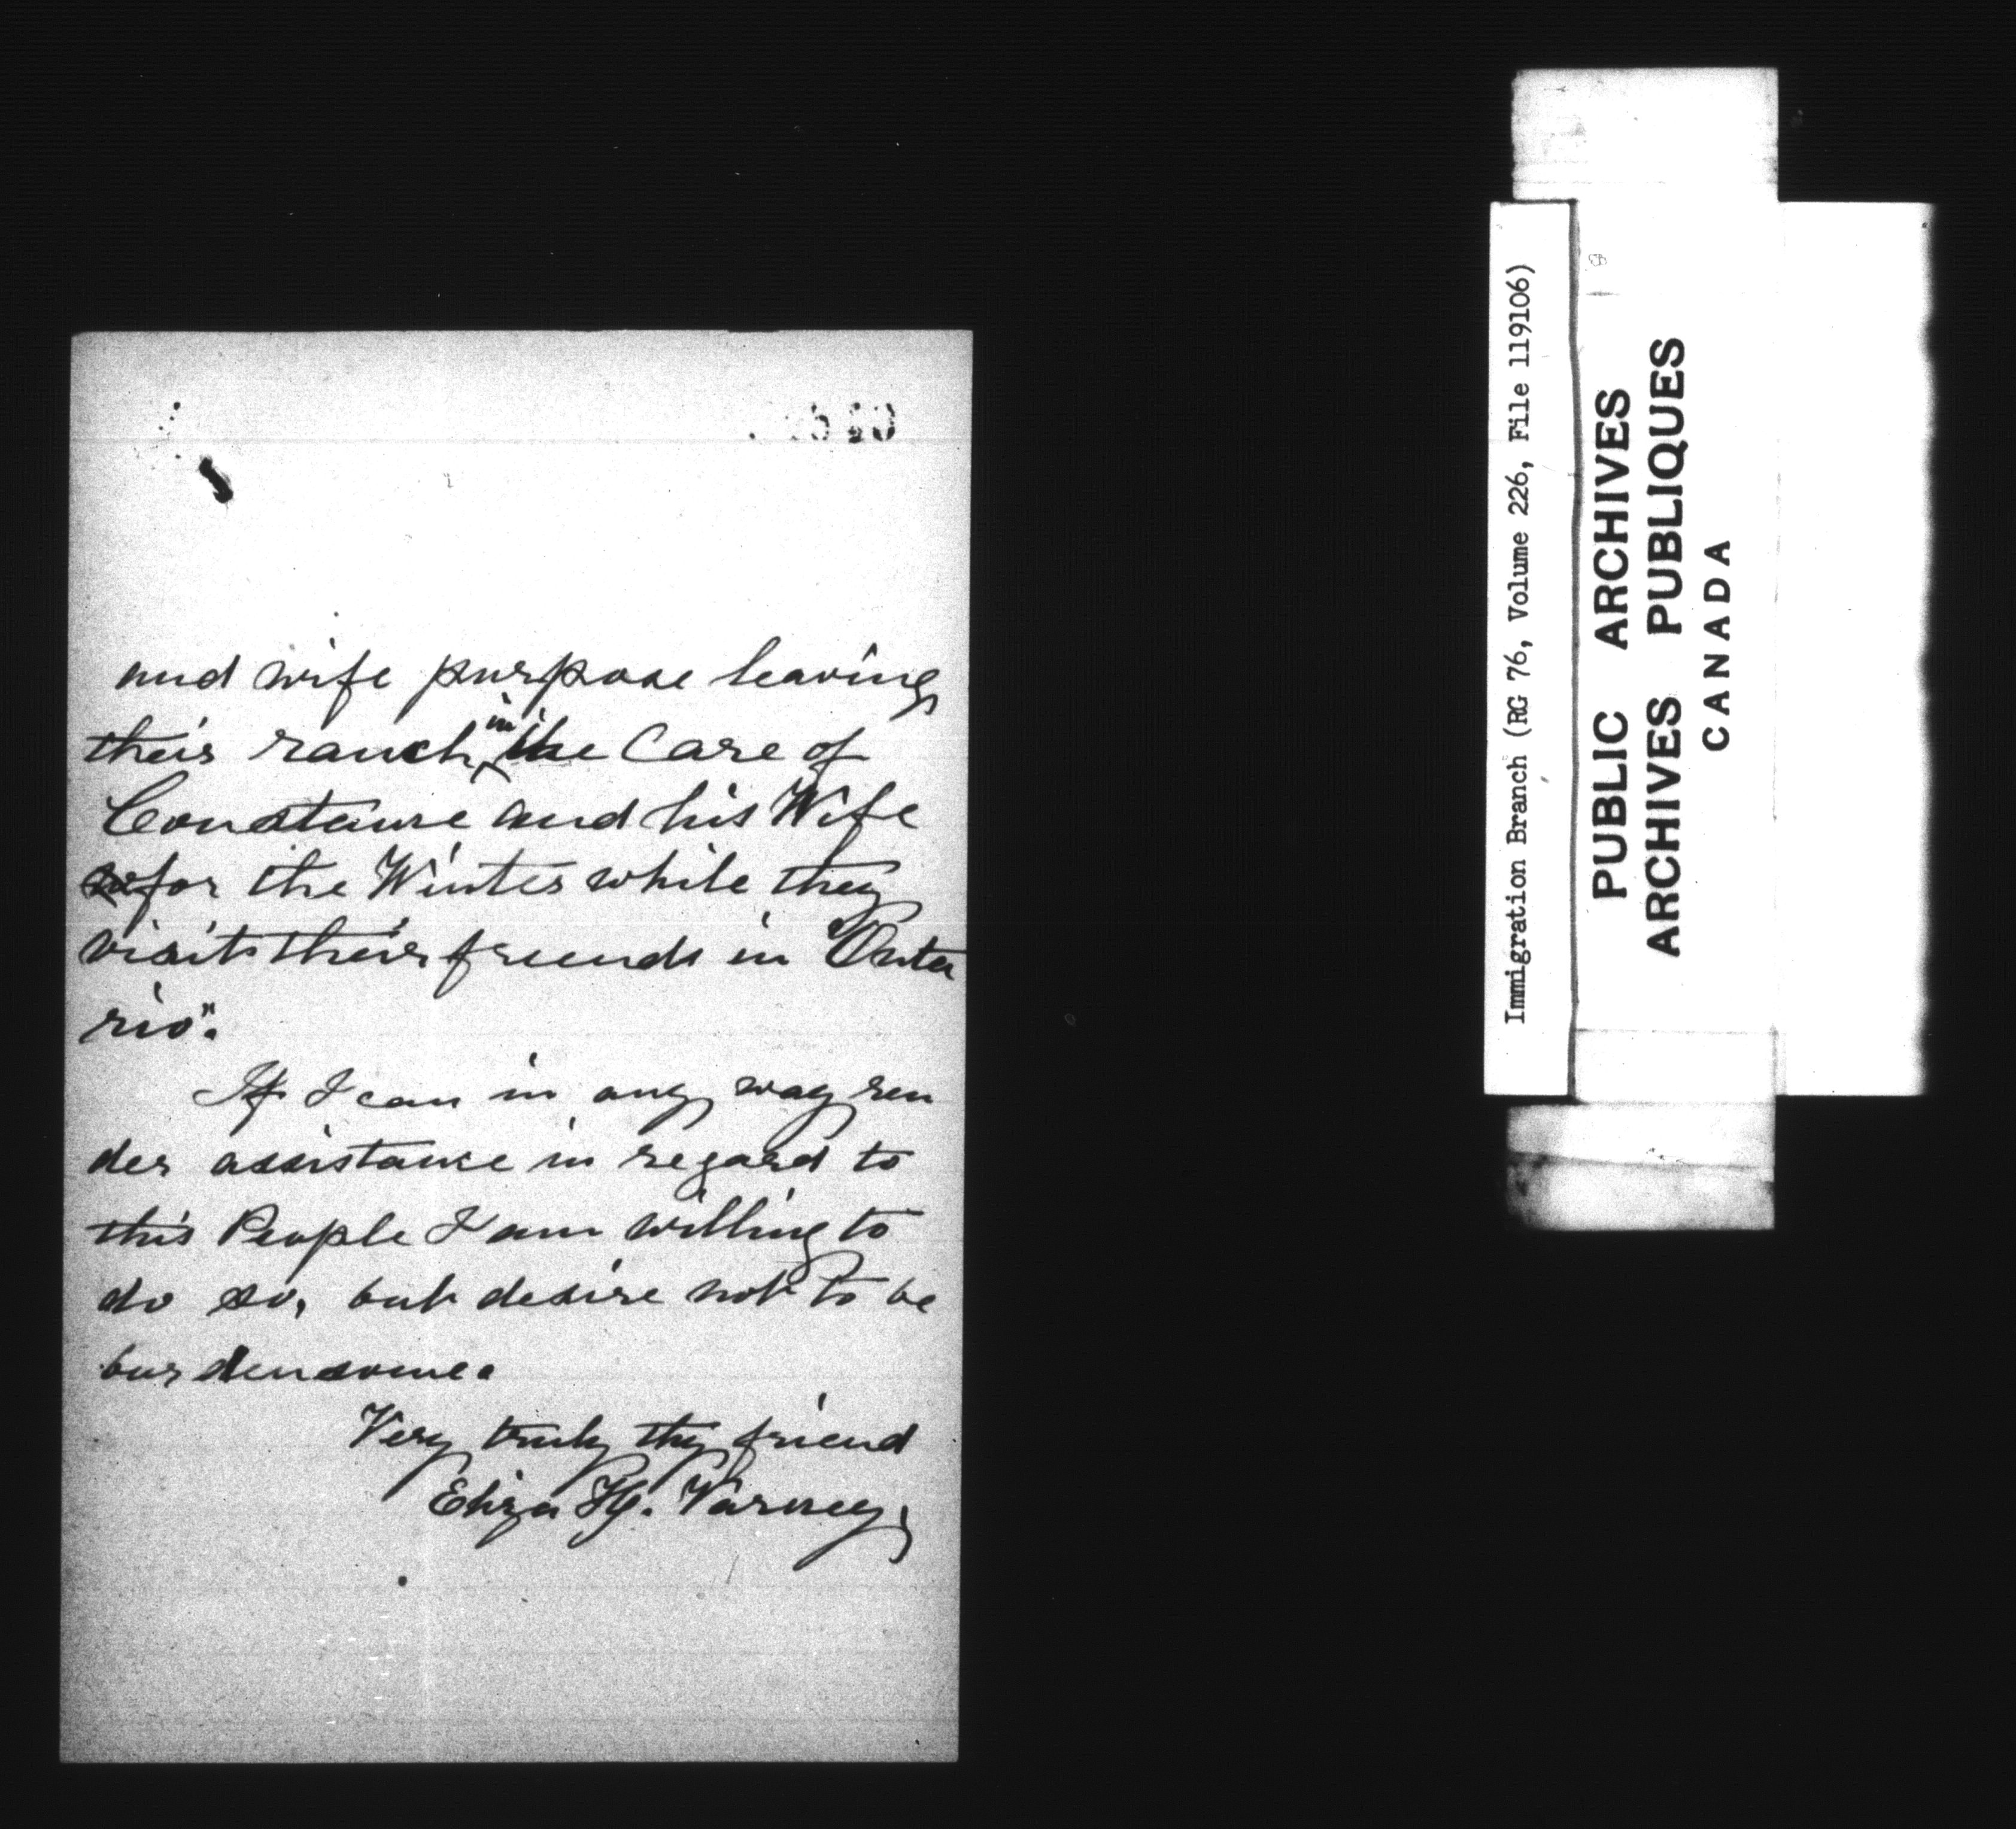 and wife purpose leaving
their ranch in the Care of
Constance and his Wife
for the Winter while they
visit their friends in "Onta
rio".
If I can in any way ren
der assistance in regard to
this People I am willing to
do so, but desire not to be
burdensome.
Very truly thy friend
Eliza H. Varney,
Immigration Branch (RG 76, Volume 226, File 119106)
PUBLIC ARCHIVES
ARCHIVES PUBLIQUES
CANADA